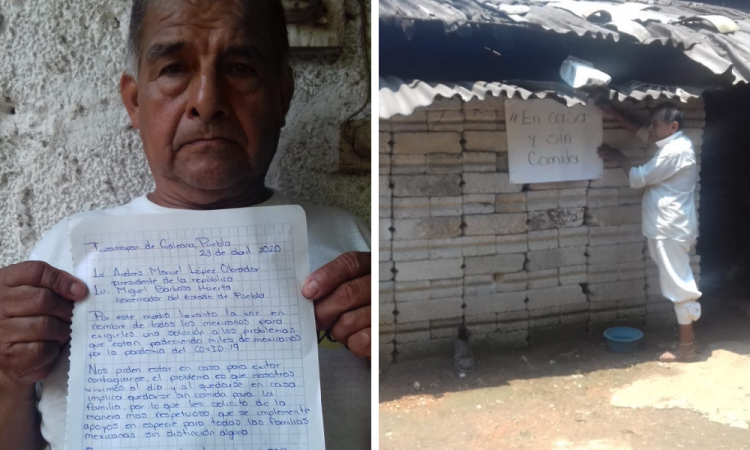 Tuzamapan de Galeana, Puebla
23 de abril 2020
Lic Andres Manuel López Obrador
presidente de la república
Lic. Miguel Barbosa Huerta
Gobernador del Estado de Puebla
Por este medio levanto la voz en
nombre de todos los mexicanos para
exigirles una solución a los problemas
que estan padeciendo miles de mexicanos
por la pandemia del COVID 19
Nos piden estar en casa para evitar
contagiarse, el problema es que nosotros
vivimos al dia y al quedarse en casa
implica quedarse sin comida para la
familia, por lo que les solicito de la
manera mas respetuosa que se implemente
apoyos en especie para todas las familias
mexicanas sin distinción alguna.
#En casa
y sin
Comida